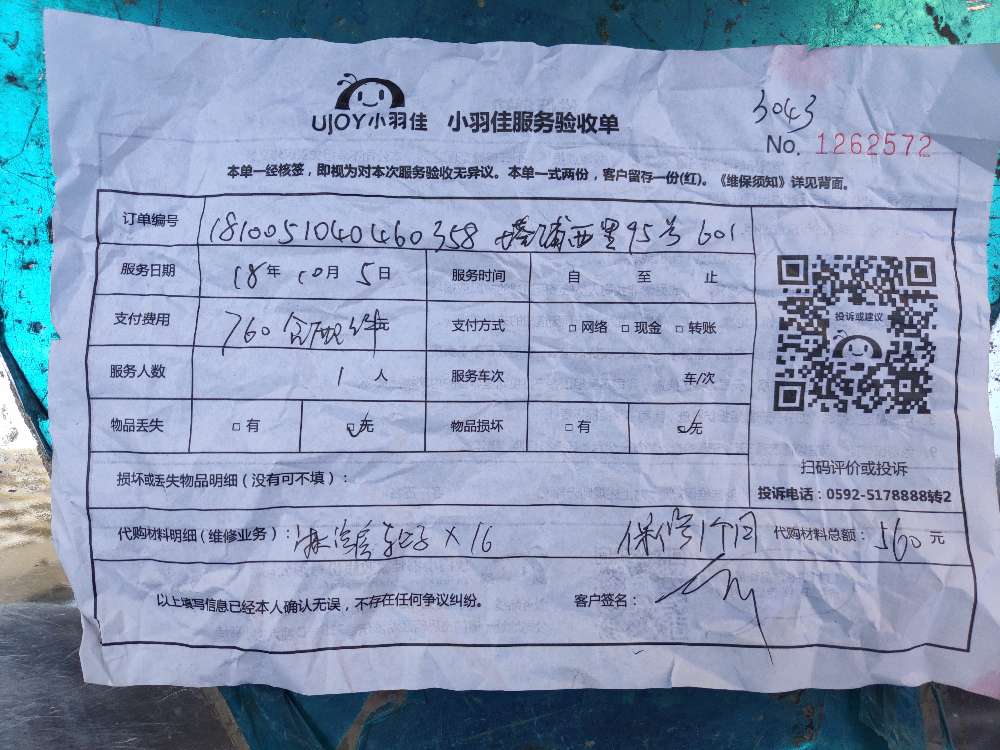 UJOY小羽佳 小羽佳服务验收单
3043
No. 1262572
本单一经核签，即视为对本次服务验收无异议。本单一式两份，客户留存一份(红)。《维保须知》详见背面。
订单编号 181005104040460358 塔浦西里95号601
服务日期 18年10月5日 服务时间 自 至 止
支付费用 760 含配件元 支付方式 □网络 □现金 □转账
投诉或建议
服务人数 1人 服务车次 车/次
物品丢失 □有 ☑无 物品损坏 □有 ☑无
扫码评价或投诉
损坏或丢失物品明细（没有可不填）：
投诉电话：0592-5178888转2
代购材料明细(维修业务)：淋浴房轮子×16 保修1个月 代购材料总额：560元
以上填写信息已经本人确认无误，不存在任何争议纠纷。 客户签名：